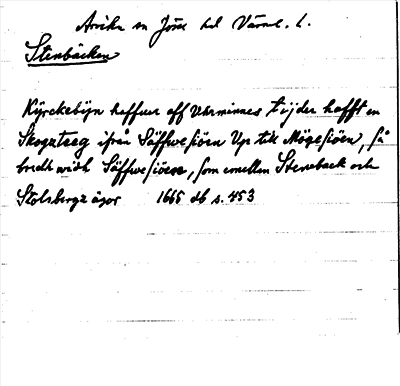 Arvika sn Jösse hd Värml. l.
Stenbäcken
Kyrckebyn haffuer aff Uhrminnes tijder hafft en
Skogzteeg ifrån Säffwesiöen Up till Mögesiöen, så
bredh widh Säffwesiöen, som emellan Stenback och
Stolsbergz ägor 1665 db s. 453